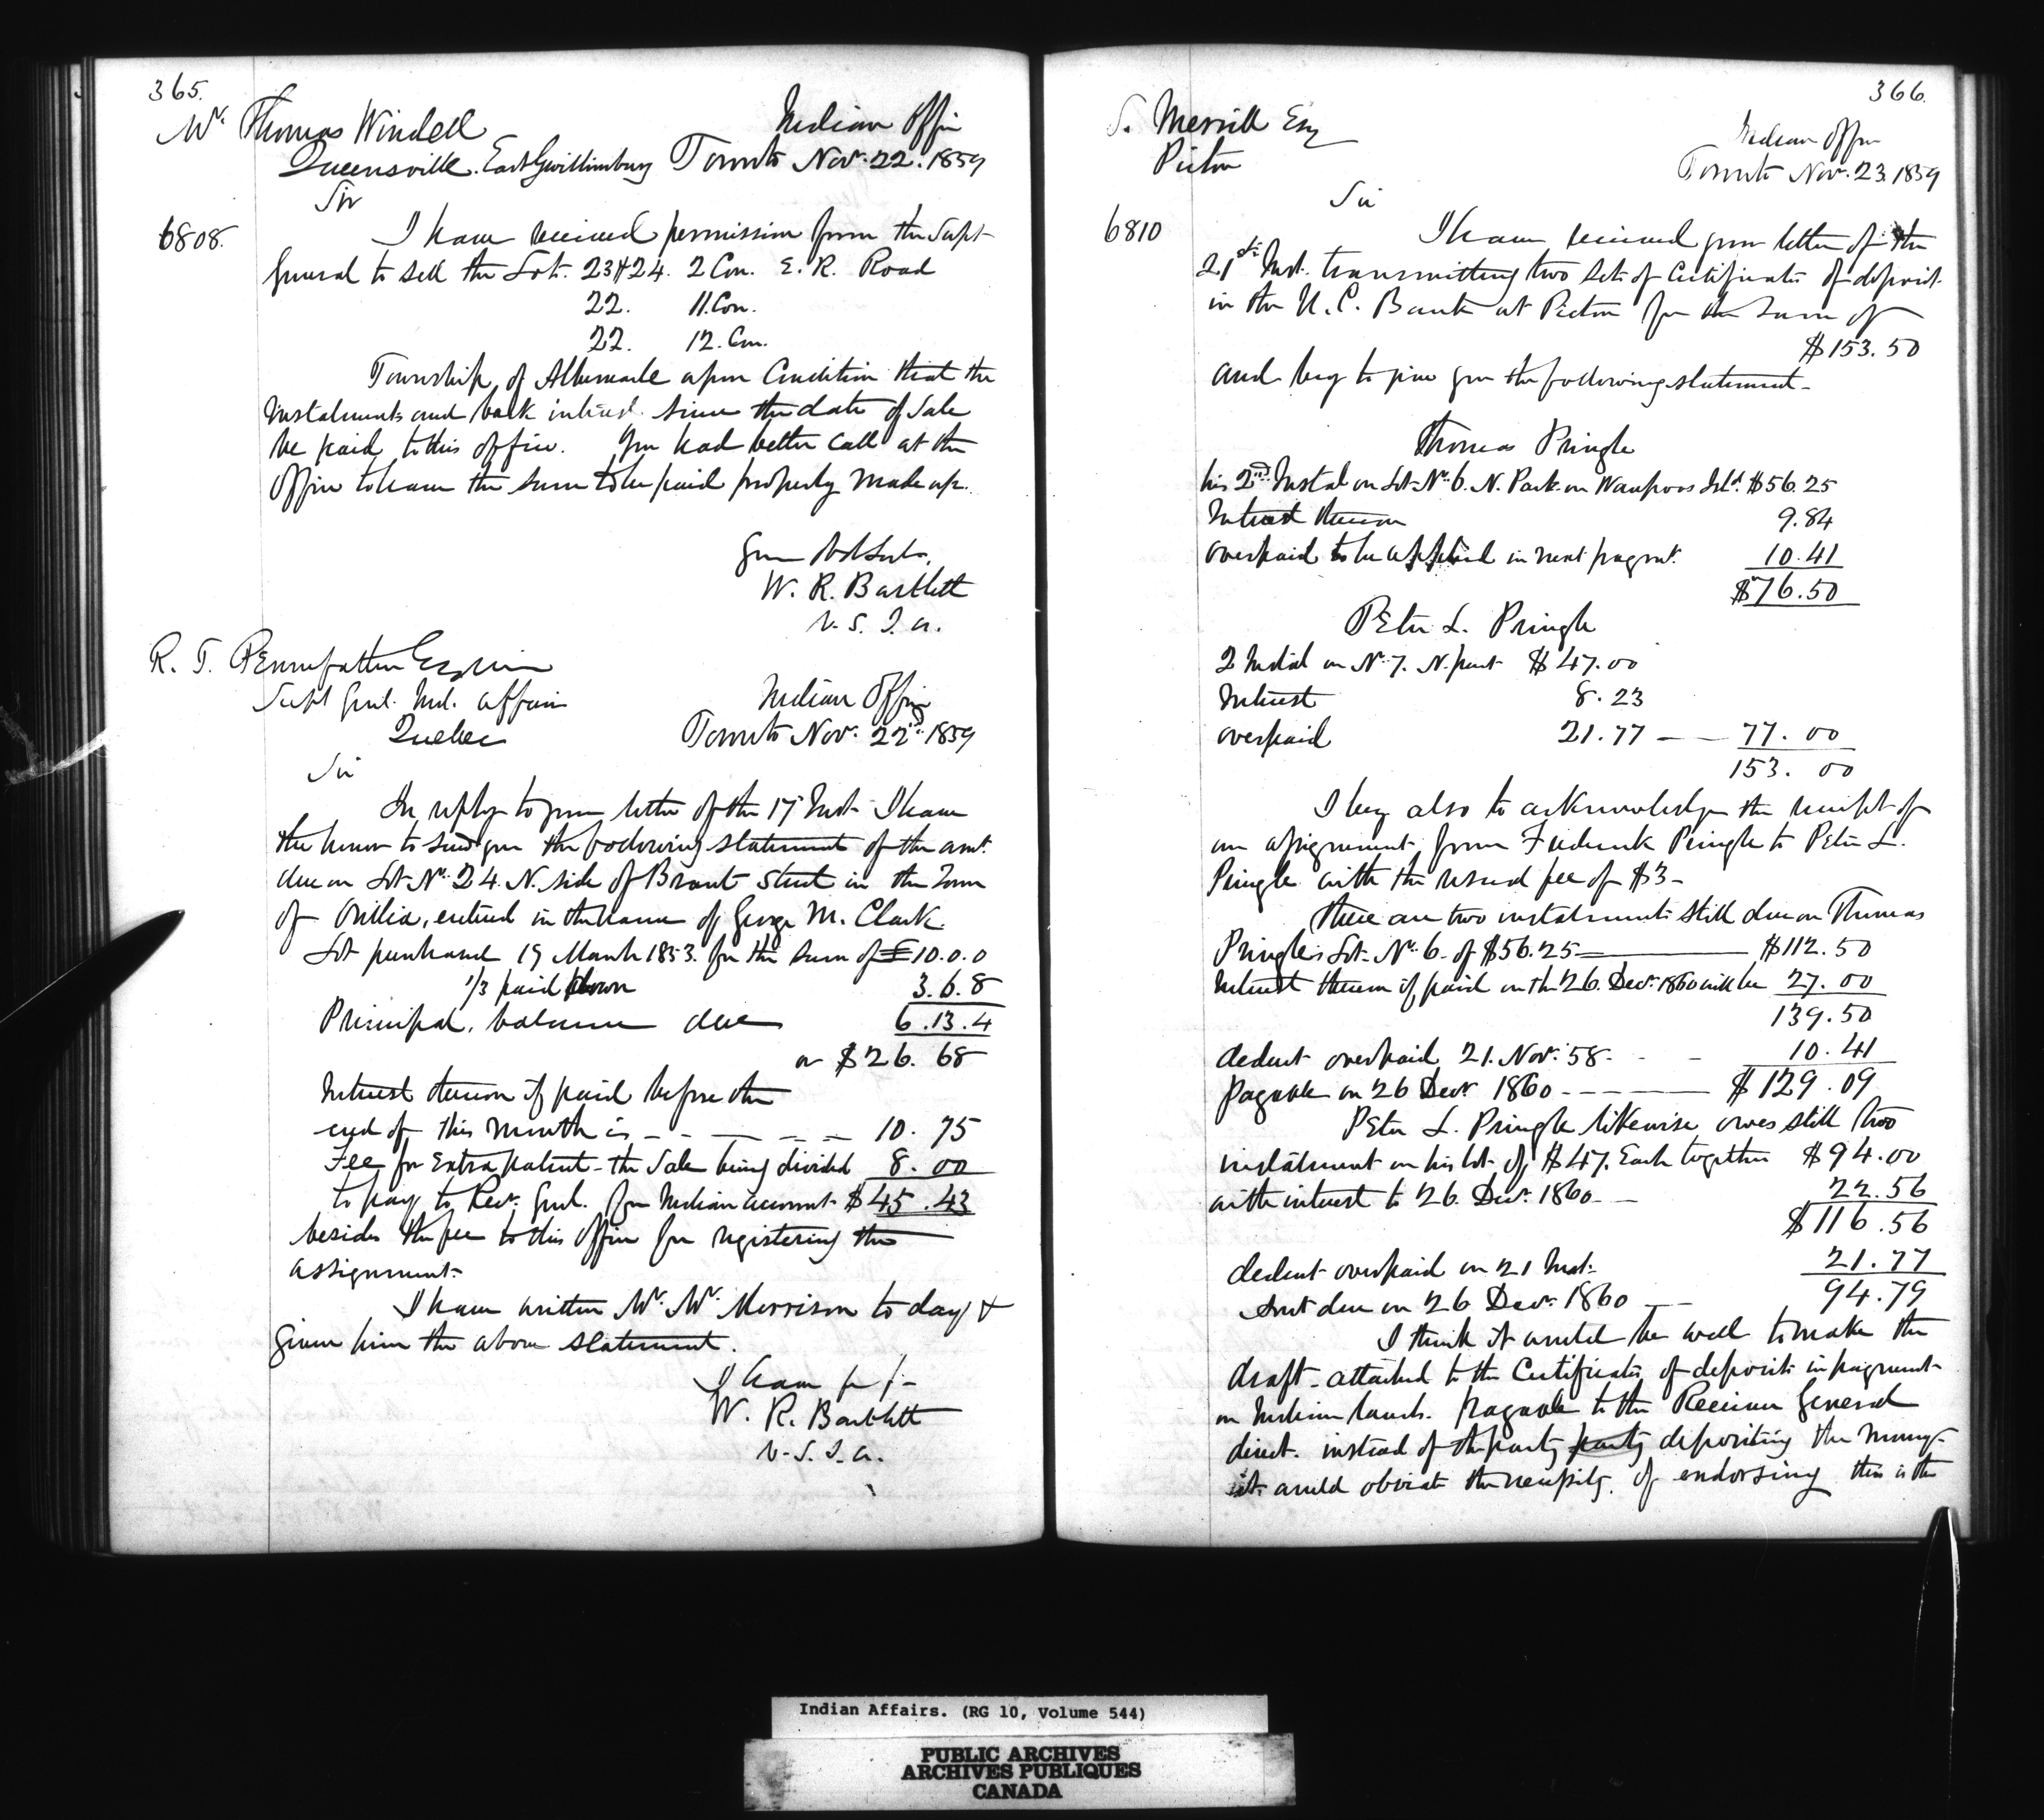 365.
Mr. Thomas Windell
Indian Office
Queensville. East Gwillimbury Toronto Nov. 22. 1859
Sir
6808.
I have received permission from the Supt
General to sell the Lots. 23 & 24. 2 Con. E. R. Road
22. 11. Con.
22. 12. Con.
Township of Albemarle upon Condition that the
instalments and back interest since the date of Sale
be paid to this office. You had better call at the
Office to have the sum to be paid properly made up.
Your Obdt Servt.
W. R. Bartlett
V. S. I. A.
R. T. Pennefather Esquire
Supt Genl. Ind. Affairs
Quebec
Indian Office
Toronto Nov. 22nd 1859
Sir
In reply to your letter of the 17 Inst I have
the honor to send you the following statement of the amt.
due on Lot No. 24. N. side of Brant Street in the Town
of Orillia, entered in the name of George M. Clark.
Lot purchased 19 March 1853. for the sum of £10.0.0
1/3 paid down 3.6.8
Principal, balance due 6.13.4
or $26.68
Interest thereon if paid before the
end of this month is - - - - - - 10.75
Fee for Extra patent - the Sale being divided 8.00
to pay to Recr. Genl. for Indian account $45.43
besides the fee to this Office for registering the
assignment.
I have written Mr. Wr. Morrison to day &
given him the above statement.
I have &c
W. R. Bartlett
V. S. I. A.
366.
S. Merrill Esq
Picton
Indian Office
Toronto Nov. 23. 1859
Sir
6810
I have received your letter of the
21st Inst. transmitting two sets of Certificates of deposit
in the U. C. Bank at Picton for the sum of
$153.50
and beg to give you the following statement -
Thomas Pringle
his 2nd Instal on Lot No. 6. N. Part on Waupoos Isld. $56.25
Interest thereon 9.84
overpaid to be applied in next paymt. 10.41
$76.50
Peter L. Pringle
2 Instal on No. 7. N. part $47.00
Interest 8.23
overpaid 21.77 — — 77.00
153.00
I beg also to acknowledge the receipt of
an assignment from Frederick Pringle to Peter L.
Pringle with the usual fee of $3 -
There are two instalments still due on Thomas
Pringle's Lot No. 6 - of $56.25 — $112.50
Interest thereon if paid on the 26. Decr. 1860 will be 27.00
139.50
deduct overpaid 21. Nov. 58 - - 10.41
payable on 26 Decr 1860 - - - - $129.09
Peter L. Pringle likewise owes still two
instalment on his lot of $47. Each together $94.00
with interest to 26. Decr. 1860 - — 22.56
$116.56
deduct overpaid on 21 Inst. 21.77
Amt due on 26 Decr. 1860 — 94.79
I think it would be well to make the
draft - attached to the Certificates of deposits in payment
on Indian lands. payable to the Receiver General
direct. instead of the party party depositing the money -
it would obviate the necessity. of endorsing this is the
Indian Affairs. (RG 10, Volume 544)
PUBLIC ARCHIVES
ARCHIVES PUBLIQUES
CANADA